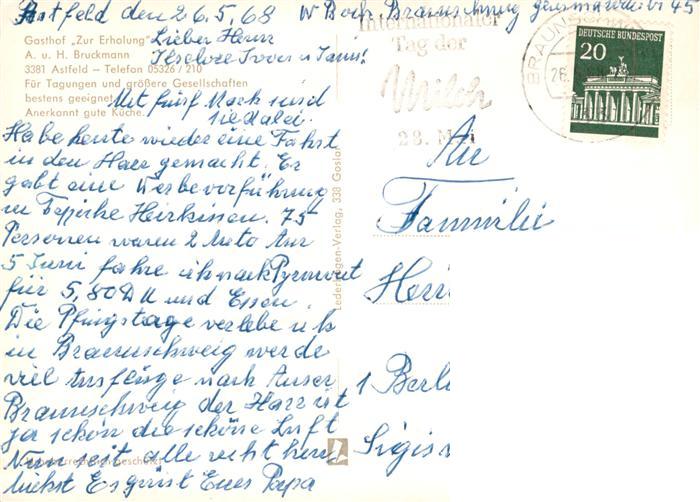 Astfeld den 26.5.68 W Braunschweig 45
Gasthof „Zur Erholung“
A. u. H. Bruckmann
3381 Astfeld – Telefon 05326/210
Für Tagungen und größere Gesellschaften
bestens geeignet
Anerkannt gute Küche.
Lieber Horr
Internationaler
Tag der
Milch
28. Mai
BRAUNSCHWEIG
DEUTSCHE BUNDESPOST
20
Mit fünf Mark sind
sie dabei.
Habe heute wieder eine Fahrt
in den Harz gemacht. Es
gabt eine Werbevorführung
in Teppiche Heirkissen. 75
Personen waren 2 Auto Am
5 Juni fahre ich nach Pyrmont
für 5,80 DM und Essen.
Die Pfingstage verlebe ich
in Braunschweig werde
viel Ausflüge nach
Braunschweig der Harz ist
ja schön die schöne Luft
Nun seit alle recht herz
lichst Es grüst Eues Papa
Lederbogen-Verlag, 338 Goslar
An
Fammilie
Herr
1 Berli
Sigis